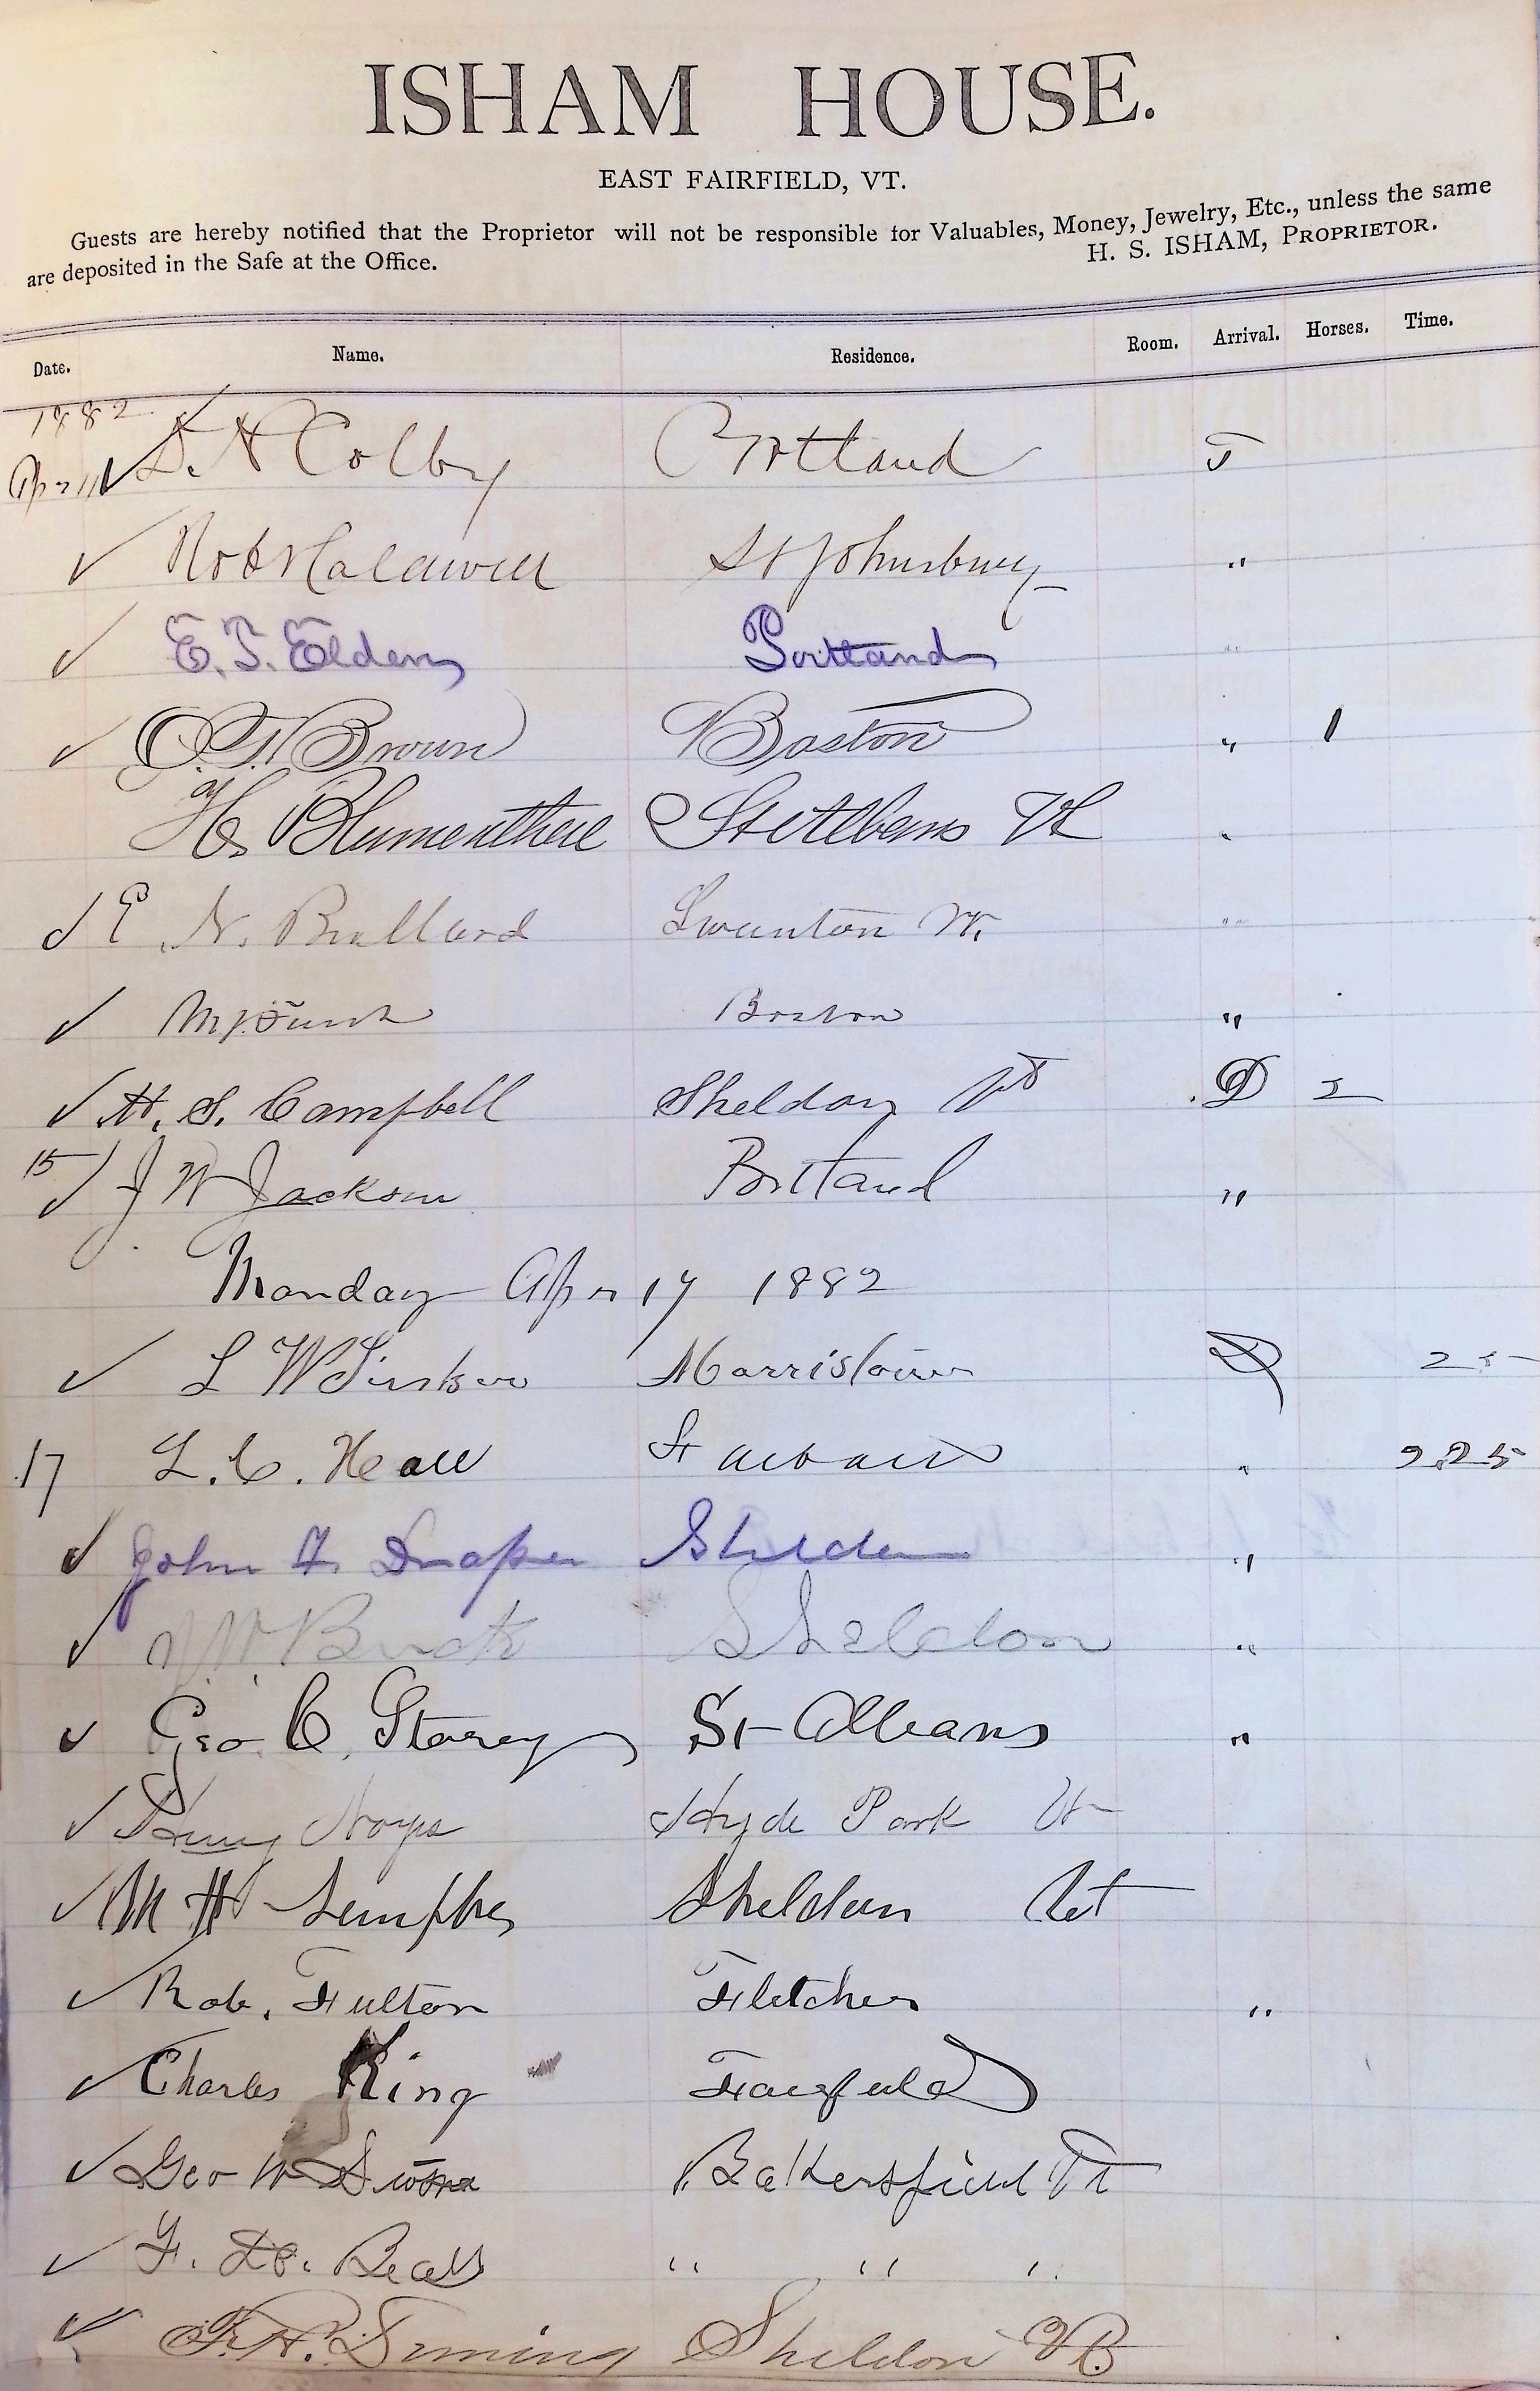 ISHAM HOUSE.
EAST FAIRFIELD, VT.
Guests are hereby notified that the Proprietor will not be responsible for Valuables, Money, Jewelry, Etc., unless the same
are deposited in the Safe at the Office. H. S. ISHAM, PROPRIETOR.
Date. Name. Residence. Room. Arrival. Horses. Time.
1882
Apr 11 D. H Colby Portland T
St Johnsbury "
E. T. Elden Portland "
Brown Boston " 1
H. St Albans Vt "
E N. Bullard Swanton Vt. "
Boston "
H. S. Campbell Sheldon Vt D 2
15 J W Jackson Portland "
Monday Apr 17 1882
L W Morristown D 25
17 L. C. Hall St Albans " 925
John F. Draper Sheldon "
Sheldon "
Geo. C. Storey St Albans "
Henry Noyes Hyde Park Vt
M H Sheldon Vt
Rob. Fulton Fletcher "
Charles King Fairfield
Geo W Bakersfield Vt
F. Beals " " "
F. H. Deming Sheldon Vt